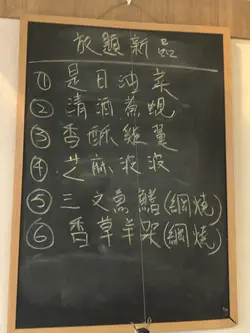 放題新品
① 是日油菜
② 清酒煮蜆
③ 香酥雞翼
④ 芝麻波波
⑤ 三文魚鰭(網燒)
⑥ 香草羊架(網燒)